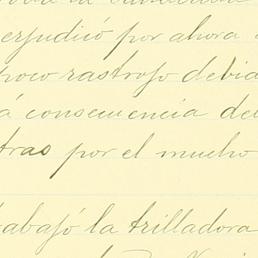 erjudicó por ahora
poco rastrojo debia
á consecuencia del
tras por el mucho
trabajó la trilladora